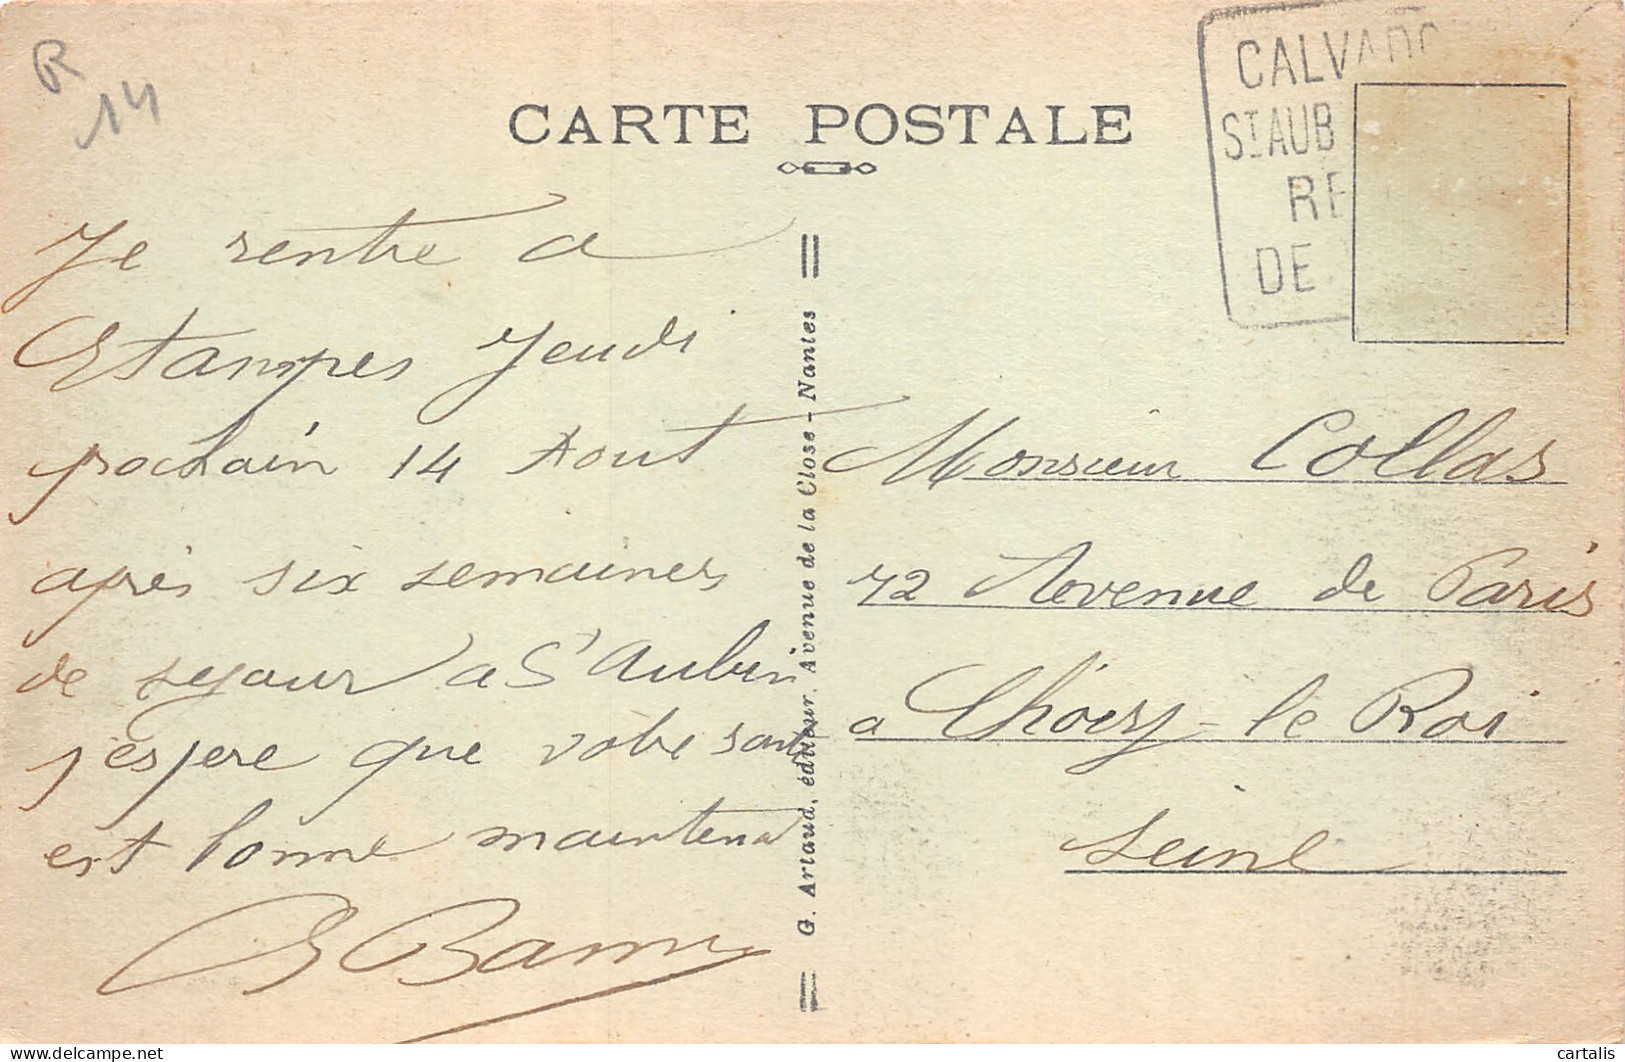 R
14
CARTE POSTALE
CALVADO
ST AUB
RE
DE
Je rentre a
Etampes Jeudi
prochain 14 Aout
après six semaines
de sejour a St Aubin
j'espere que votre santé
est bonne maintenant
G. Artaud, éditeur. Avenue de la Close - Nantes
Monsieur Collas
72 Avenue de Paris
a Choisy-le Roi
Seine
cartalis